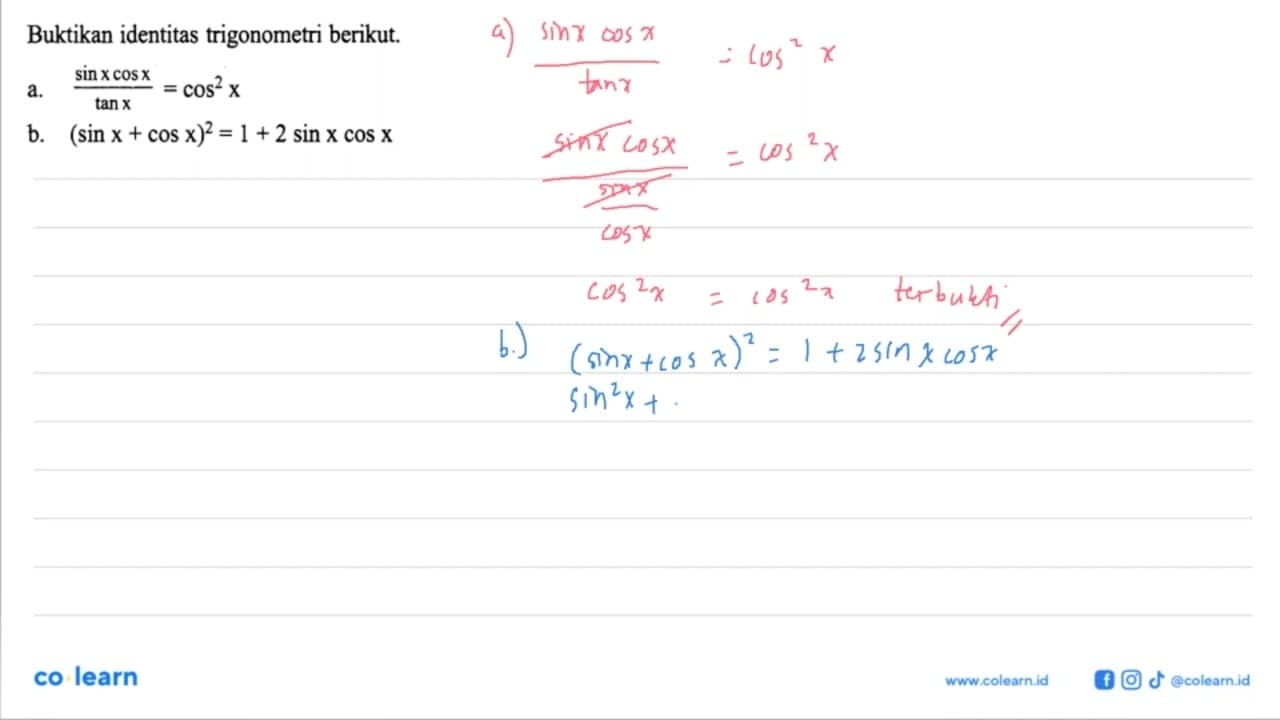 Buktikan identitas trigonometri berikut.
a. sin x cos x / tan x = cos² x
b. (sin x + cos x)² = 1 + 2 sin x cos x
a) sinx cos x / tanx = cos² x
sinx cosx / sinx / cosx = cos²x
cos²x = cos²x terbukti //
b.) (sinx + cos x)² = 1 + 2 sin x cosx
sin²x + .
co learn
www.colearn.id
@colearn.id